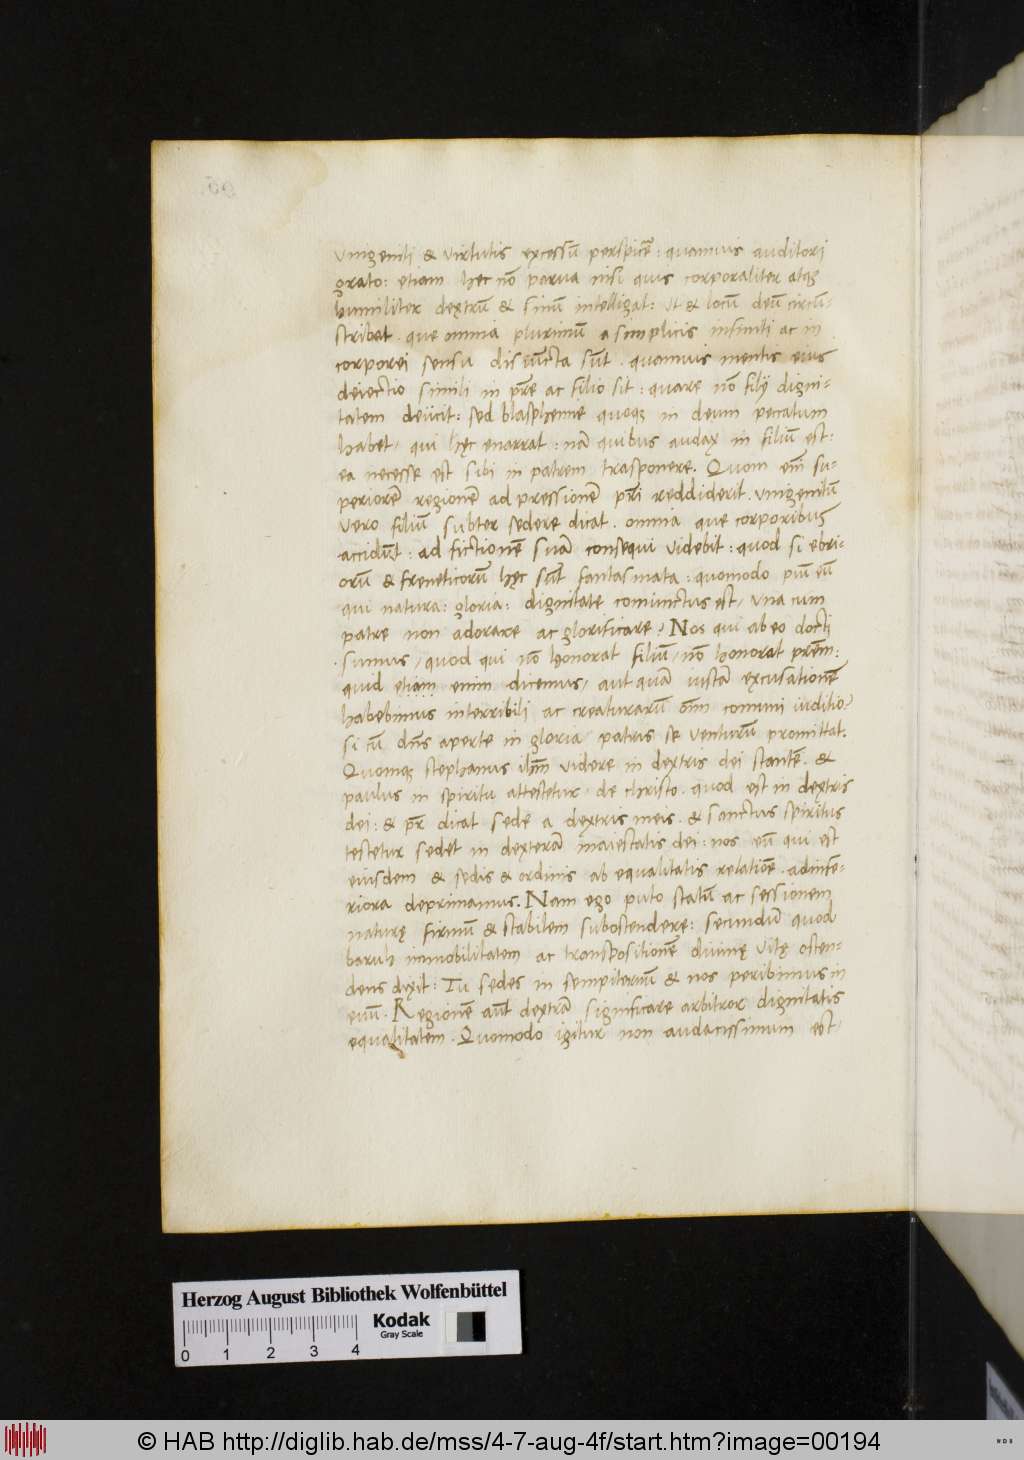 vnigeniti & virtutis excessū perspicē : quamuis auditori
grato : etiam hec nō parua nisi quis corporaliter atqȝ
humiliter dextrū & sinū intelligat : vt & locū deū circū-
scribat . que omnia plurimū a simplicis infiniti ac in
corporei sensu disiūcta sūt . quamuis mentis eius
deiectio simili in pr̄e ac filio sit : quare nō filij digni-
tatem deiicit : sed blasphemie quoqȝ in deum peccatum
habet , qui hęc enarrat : nā quibus audax in filiū est :
ea necesse est sibi in patrem trāsponere . Quom em̄ su-
periorē regionē ad pressionē pr̄i reddiderit . vnigenitū
vero filiū subter sedere dicat . omnia que corporibus
accidūt : ad fictionē suā consequi videbit : quod si ebri-
orū & freneticorū hęc sūt fantasmata : quomodo piū eū
qui natura : gloria : dignitate coniunctus est , vna cum
patre non adorare ac glorificare ? Nos qui ab eo docti
sumus , quod qui nō honorat filiū , nō honorat pr̄em :
quid etiam enim dicemus , aut quā iustā excusationē
habebimus in terribili ac creaturarū oīm comuni iuditio ?
si cū dn̄s aperte in gloria patris se venturū promittat .
Quomqȝ stephanus ih̄m videre in dextris dei stantē . &
paulus in spiritu attestetur , de christo . quod est in dextris
dei : & pr̄ dicat sede a dextris meis . & sanctus spiritus
testetur sedet in dexterā maiestatis dei : nos eū qui est
eiusdem & sedis & ordinis ab equalitatis relatiōe . ad infe-
riora deprimamus . Nam ego puto statū ac sessionem
naturę firmū & stabilem subostendere : secundū quod
baruh immobilitatem ac transpositionē diuinę vitę osten-
dens dixit : Tu sedes in sempiternū & nos peribimus in
euū . Regionē aūt dextrā significare arbitror dignitatis
equalitatem . Quomodo igitur non audacissimum est ,
Herzog August Bibliothek Wolfenbüttel
Kodak
Gray Scale
0 1 2 3 4
© HAB http://diglib.hab.de/mss/4-7-aug-4f/start.htm?image=00194